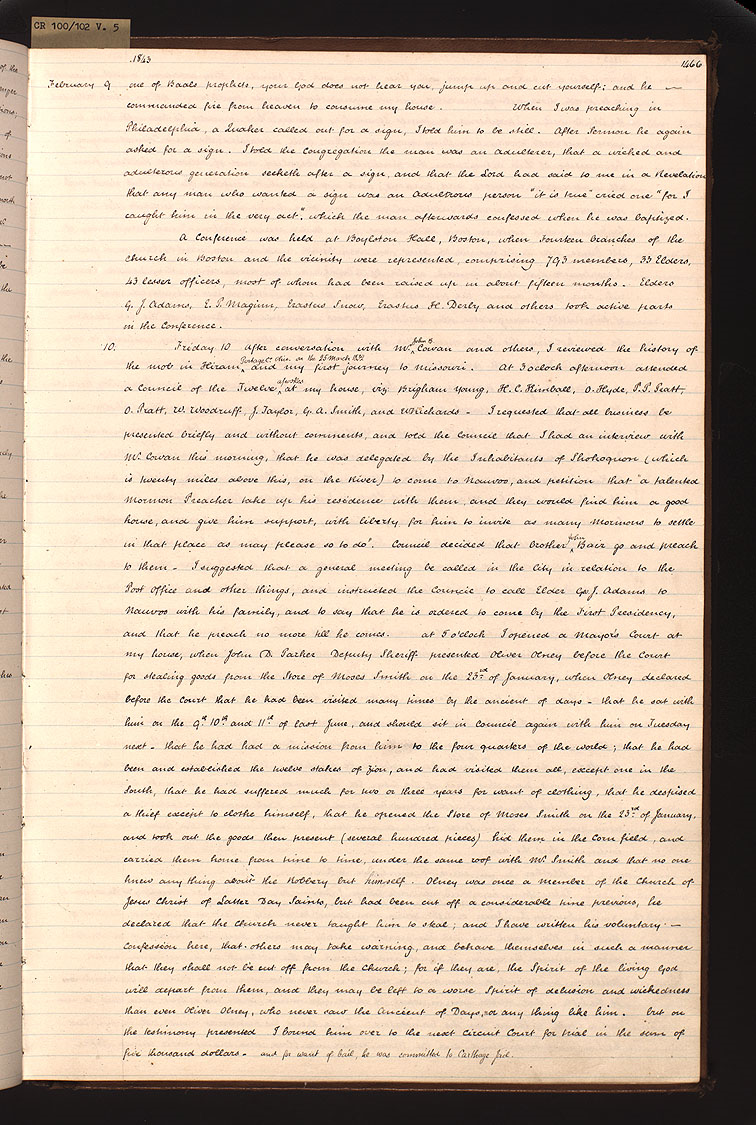 CR 100/102 V. 5
1843 1466
February 9 one of Baals prophets, your God does not hear you, jump up and cut yourself; and he —
commanded fire from heaven to consume my house. When I was preaching in
Philadelphia, a Quaker called out for a sign, I told him to be still. After Sermon he again
asked for a sign. I told the Congregation the man was an adulterer, that a wicked and
adulterous generation seeketh after a sign, and that the Lord had said to me in a Revelation
that any man who wanted a sign was an adultrous person "it is true" cried one "for I
caught him in the very act". which the man afterwards confessed when he was baptized.
A Conference was held at Boylston Hall, Boston, when Fourteen branches of the
Church in Boston and the vicinity were represented, comprising 793 members, 33 Elders,
43 lesser officers, most of whom had been raised up in about fifteen months. Elders
G. J. Adams, E. P. Maginn, Erastus Snow, Erastus H. Derby and others took active parts
in the Conference.
10. Friday 10 after conversation with Mr. John B. Cowan and others, I reviewed the history of
the mob in Hiram, Portage Co. Ohio. on the 25 March 1832 and my first journey to Missouri. At 3 oclock afternoon attended
a Council of the Twelve apostles at my house, viz: Brigham Young, H. C. Kimball, O. Hyde, P. P. Pratt,
O. Pratt, W. Woodruff, J. Taylor, G. A. Smith, and W Richards - I requested that all business be
presented briefly and without comments, and told the Council that I had an interview with
Mr. Cowan this morning, that he was delegated by the Inhabitants of Shokoquon (which
is twenty miles above this, on the River) to come to Nauvoo, and petition that "a talented
Mormon Preacher take up his residence with them, and they would find him a good
house, and give him support, with liberty for him to invite as many Mormons to settle
in that place as may please so to do". Council decided that brother John Bair go and preach
to them - I suggested that a general meeting be called in the City in relation to the
Post Office and other things, and instructed the Council to call Elder Geo. J. Adams to
Nauvoo with his family, and to say that he is ordered to come by the First Presidency,
and that he preach no more till he comes. at 5 o'clock I opened a Mayor's Court at
my house, when John D. Parker Deputy Sheriff presented Oliver Olney before the Court
for stealing goods from the Store of Moses Smith on the 23rd of January, when Olney declared
before the Court that he had been visited many times by the ancient of days - that he sat with
him on the 9th 10th and 11th of last June, and should sit in Council again with him on Tuesday
next - that he had had a mission from him to the four quarters of the world; that he had
been and established the twelve stakes of Zion, and had visited them all, except one in the
South, that he had suffered much for two or three years for want of clothing, that he despised
a thief except to clothe himself, that he opened the Store of Moses Smith on the 23rd of January,
and took out the goods then present (several hundred pieces) hid them in the Corn field, and
carried them home from time to time, under the same roof with Mr Smith and that no one
knew any thing about the Robbery but himself. Olney was once a member of the Church of
Jesus Christ of Latter Day Saints, but had been cut off a considerable time previous, he
declared that the Church never taught him to steal; and I have written his voluntary —
Confession here, that others may take warning, and behave themselves in such a manner
that they shall not be cut off from the Church; for if they are, the Spirit of the living God
will depart from them, and they may be left to a worse Spirit of delusion and wickedness
than even Oliver Olney, who never saw the Ancient of Days, nor any thing like him. but on
the testimony presented I bound him over to the next Circuit Court for trial in the sum of
five thousand dollars - and for want of bail, he was committed to Carthage jail.